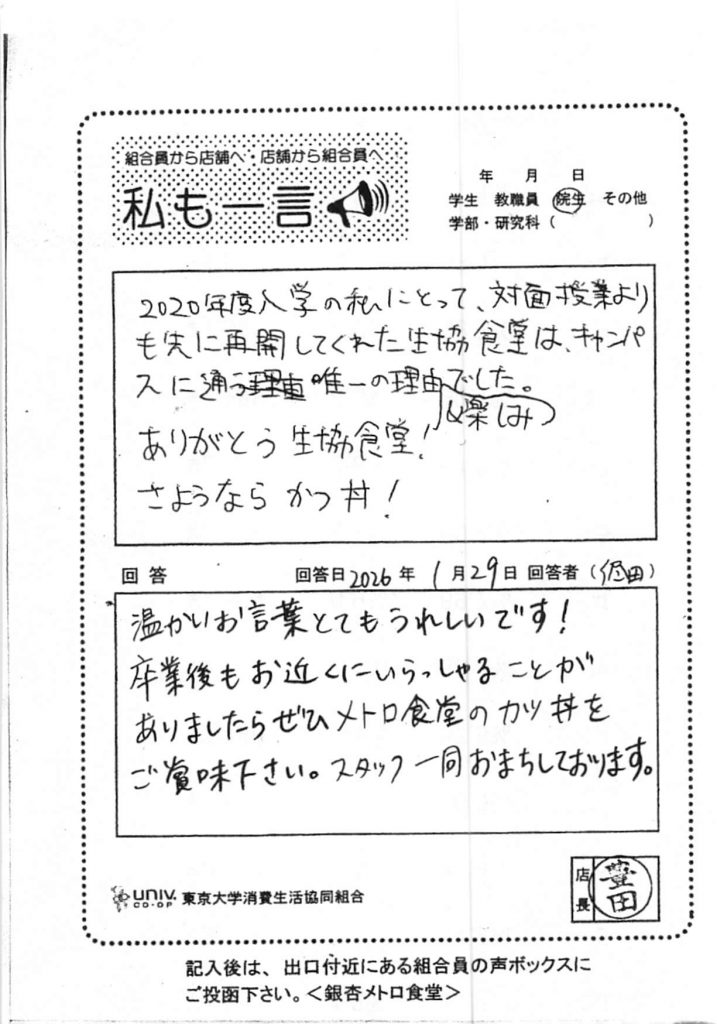 組合員から店舗へ・店舗から組合員へ
私も一言
年 月 日
学生 教職員 院生 その他
学部・研究科( )
2020年度入学の私にとって、対面授業より
も先に再開してくれた生協食堂は、キャンパ
スに通う理由唯一の理由でした。
&楽しみ
ありがとう生協食堂!
さようなら かつ丼!
回答 回答日2026年 1月29日 回答者( 田)
温かいお言葉とてもうれしいです!
卒業後もお近くにいらっしゃることが
ありましたらぜひメトロ食堂のカツ丼を
ご賞味下さい。スタッフ一同おまちしております。
UNIV. CO-OP 東京大学消費生活協同組合
店長 豊田
記入後は、出口付近にある組合員の声ボックスに
ご投函下さい。<銀杏メトロ食堂>